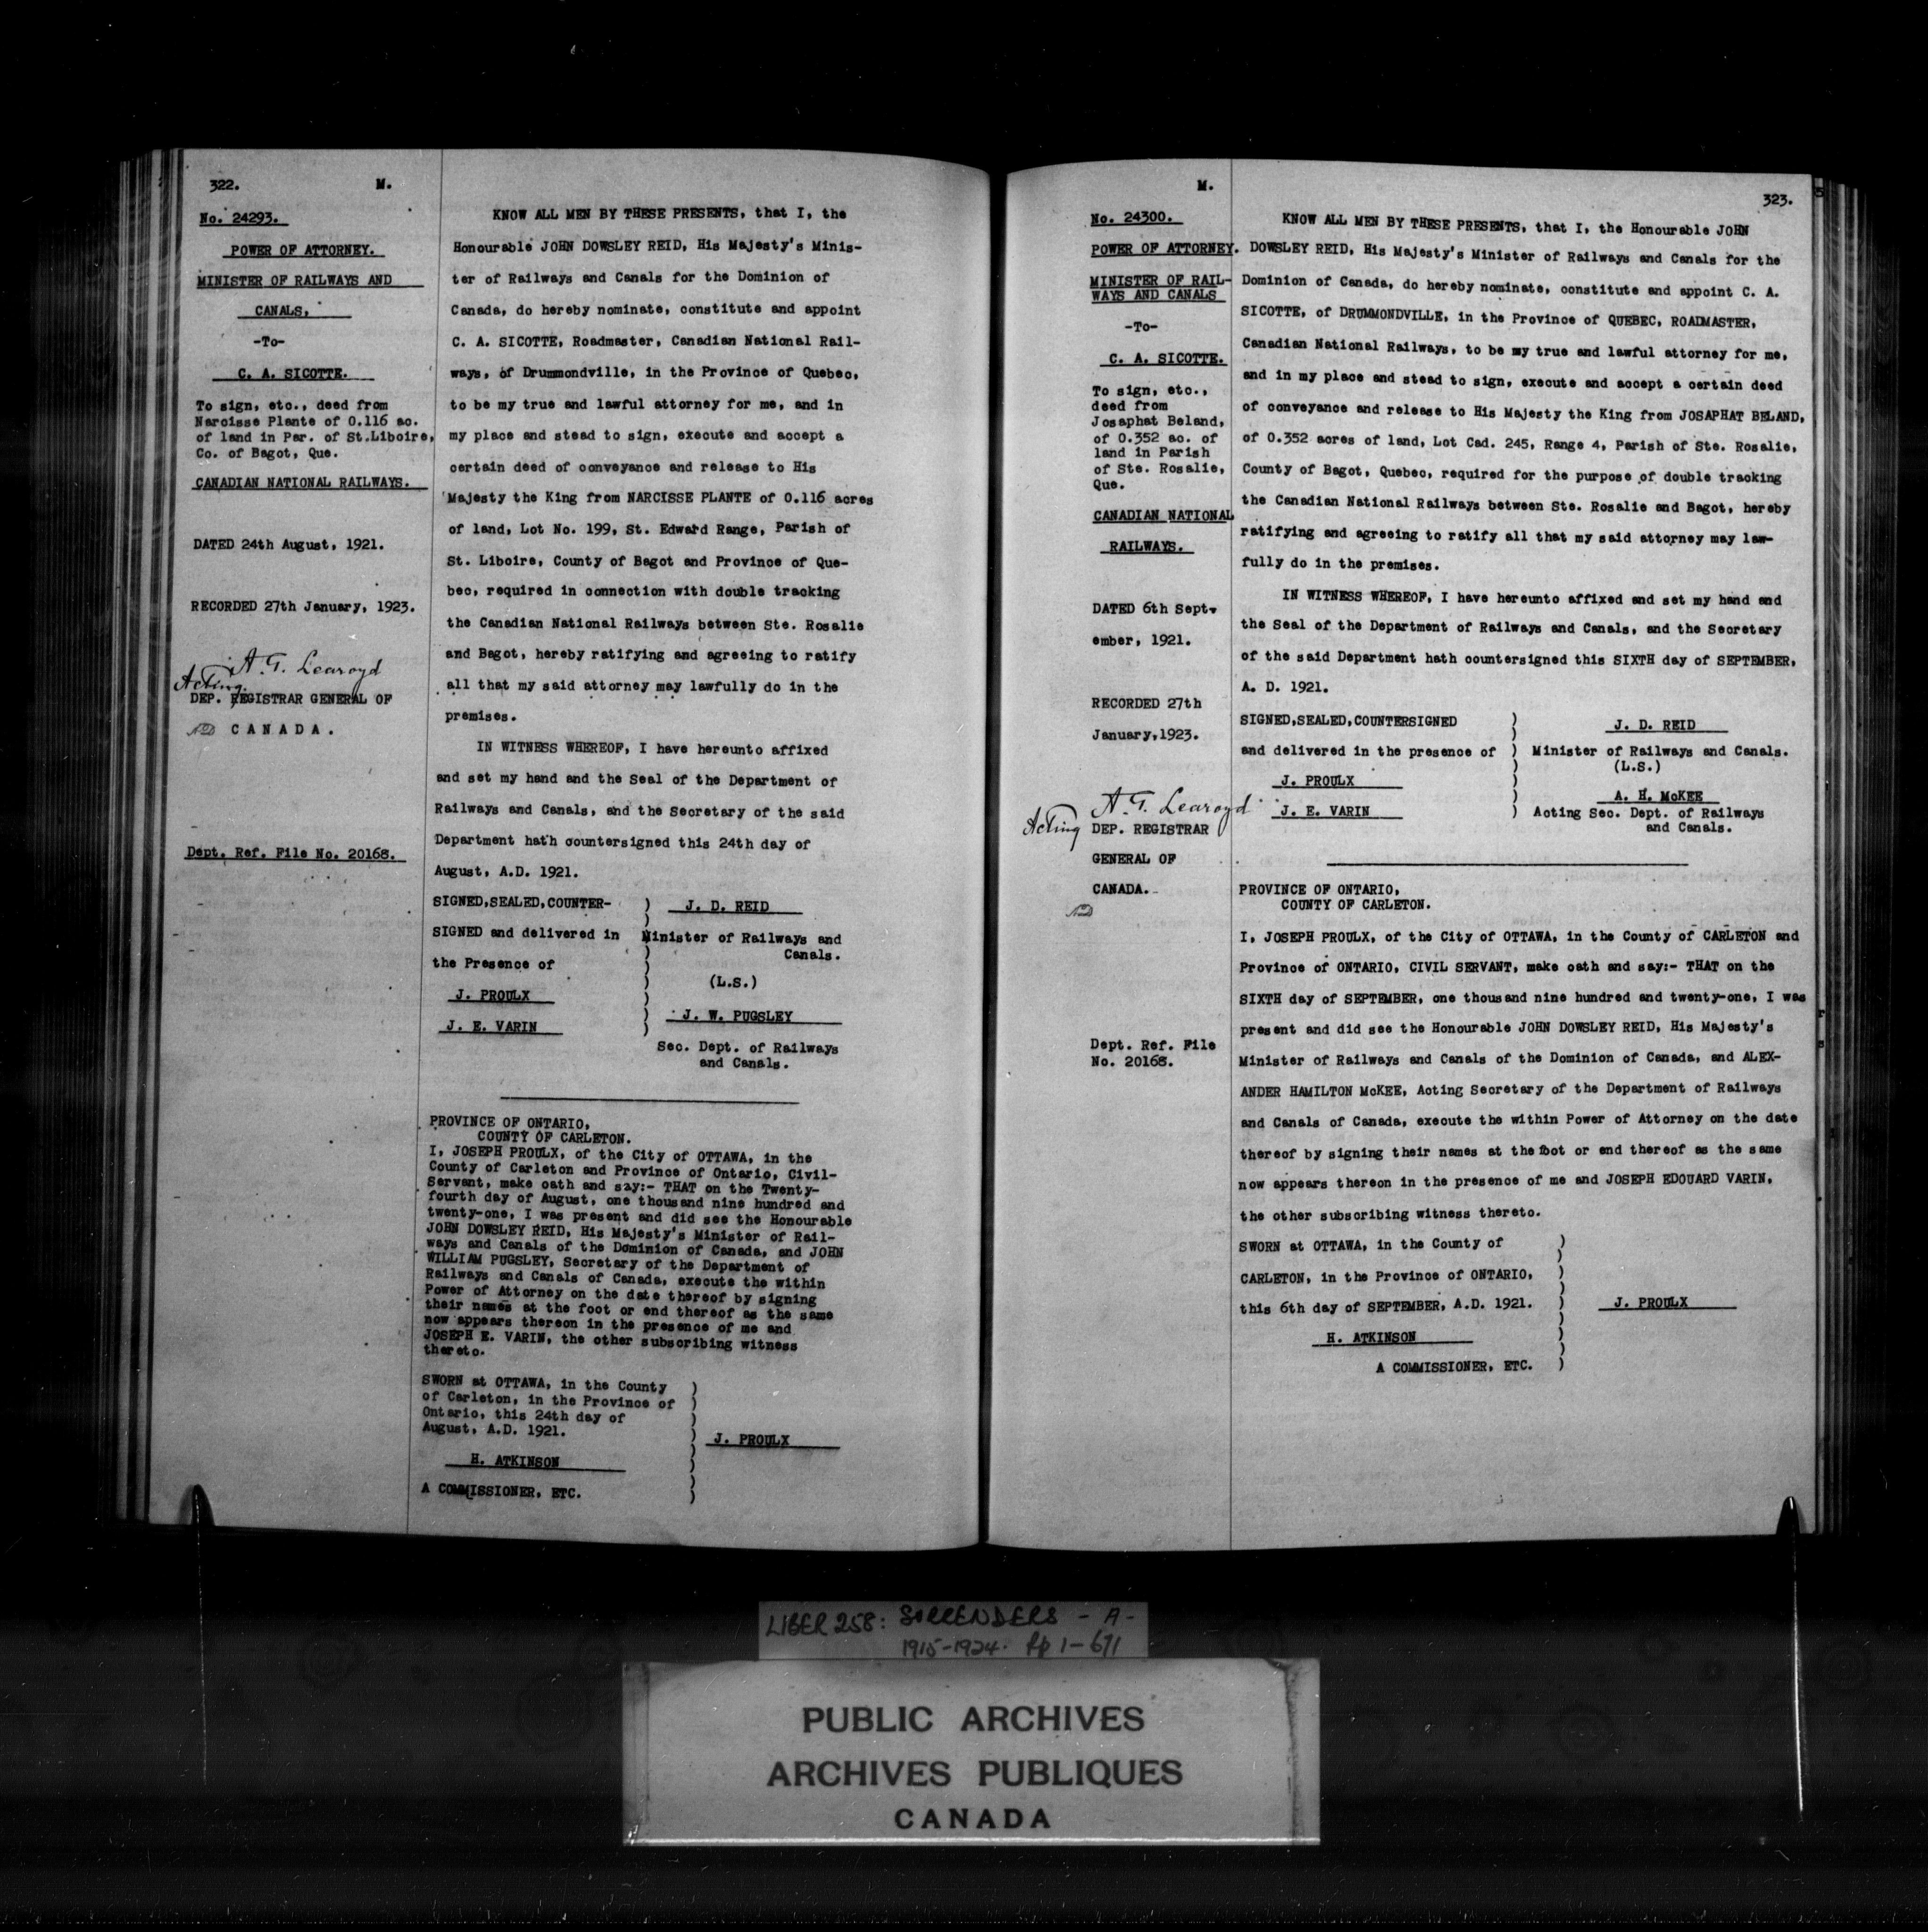 322.
M.
No. 24293.
POWER OF ATTORNEY.
MINISTER OF RAILWAYS AND
CANALS,
-To-
C. A. SICOTTE.
To sign, etc., deed from
Narcisse Plante of 0.116 ac.
of land in Par. of St.Liboire,
Co. of Bagot, Que.
CANADIAN NATIONAL RAILWAYS.
DATED 24th August, 1921.
RECORDED 27th January, 1923.
A. G. Learoyd
Acting
DEP. REGISTRAR GENERAL OF
CANADA.
Dept. Ref. File No. 20168.
KNOW ALL MEN BY THESE PRESENTS, that I, the
Honourable JOHN DOWSLEY REID, His Majesty's Minis-
ter of Railways and Canals for the Dominion of
Canada, do hereby nominate, constitute and appoint
C. A. SICOTTE, Roadmaster, Canadian National Rail-
ways, of Drummondville, in the Province of Quebec,
to be my true and lawful attorney for me, and in
my place and stead to sign, execute and accept a
certain deed of conveyance and release to His
Majesty the King from NARCISSE PLANTE of 0.116 acres
of land, Lot No. 199, St. Edward Range, Parish of
St. Liboire, County of Bagot and Province of Que-
bec, required in connection with double tracking
the Canadian National Railways between Ste. Rosalie
and Bagot, hereby ratifying and agreeing to ratify
all that my said attorney may lawfully do in the
premises.
IN WITNESS WHEREOF, I have hereunto affixed
and set my hand and the Seal of the Department of
Railways and Canals, and the Secretary of the said
Department hath countersigned this 24th day of
August, A.D. 1921.
SIGNED,SEALED,COUNTER- ) J. D. REID
SIGNED and delivered in Minister of Railways and
Canals.
the Presence of
(L.S.)
J. PROULX
J. W. PUGSLEY
J. E. VARIN
Sec. Dept. of Railways
and Canals.
PROVINCE OF ONTARIO,
COUNTY OF CARLETON.
I, JOSEPH PROULX, of the City of OTTAWA, in the
County of Carleton and Province of Ontario, Civil-
Servant, make oath and say:- THAT on the Twenty-
fourth day of August, one thousand nine hundred and
twenty-one, I was present and did see the Honourable
JOHN DOWSLEY REID, His Majesty's Minister of Rail-
ways and Canals of the Dominion of Canada, and JOHN
WILLIAM PUGSLEY, Secretary of the Department of
Railways and Canals of Canada, execute the within
Power of Attorney on the date thereof by signing
their names at the foot or end thereof as the same
now appears thereon in the presence of me and
JOSEPH E. VARIN, the other subscribing witness
thereto.
SWORN at OTTAWA, in the County )
of Carleton, in the Province of )
Ontario, this 24th day of )
August, A.D. 1921. )
J. PROULX
H. ATKINSON
A COMMISSIONER, ETC. )
M.
323.
No. 24300.
POWER OF ATTORNEY.
MINISTER OF RAIL-
WAYS AND CANALS
-To-
C. A. SICOTTE.
To sign, etc.,
deed from
Josaphat Beland,
of 0.352 ac. of
land in Parish
of Ste. Rosalie,
Que.
CANADIAN NATIONAL
RAILWAYS.
DATED 6th Sept-
ember, 1921.
RECORDED 27th
January,1923.
A. G. Learoyd
Acting DEP. REGISTRAR
GENERAL OF
CANADA.
Dept. Ref. File
No. 20168.
KNOW ALL MEN BY THESE PRESENTS, that I, the Honourable JOHN
DOWSLEY REID, His Majesty's Minister of Railways and Canals for the
Dominion of Canada, do hereby nominate, constitute and appoint C. A.
SICOTTE, of DRUMMONDVILLE, in the Province of QUEBEC, ROADMASTER,
Canadian National Railways, to be my true and lawful attorney for me,
and in my place and stead to sign, execute and accept a certain deed
of conveyance and release to His Majesty the King from JOSAPHAT BELAND,
of 0.352 acres of land, Lot Cad. 245, Range 4, Parish of Ste. Rosalie,
County of Bagot, Quebec, required for the purpose of double tracking
the Canadian National Railways between Ste. Rosalie and Bagot, hereby
ratifying and agreeing to ratify all that my said attorney may law-
fully do in the premises.
IN WITNESS WHEREOF, I have hereunto affixed and set my hand and
the Seal of the Department of Railways and Canals, and the Secretary
of the said Department hath countersigned this SIXTH day of SEPTEMBER,
A. D. 1921.
SIGNED,SEALED,COUNTERSIGNED ) J. D. REID
and delivered in the presence of ) Minister of Railways and Canals.
(L.S.)
J. PROULX
A. H. McKEE
J. E. VARIN ) Acting Sec. Dept. of Railways
and Canals.
PROVINCE OF ONTARIO,
COUNTY OF CARLETON.
I, JOSEPH PROULX, of the City of OTTAWA, in the County of CARLETON and
Province of ONTARIO, CIVIL SERVANT, make oath and say:- THAT on the
SIXTH day of SEPTEMBER, one thousand nine hundred and twenty-one, I was
present and did see the Honourable JOHN DOWSLEY REID, His Majesty's
Minister of Railways and Canals of the Dominion of Canada, and ALEX-
ANDER HAMILTON McKEE, Acting Secretary of the Department of Railways
and Canals of Canada, execute the within Power of Attorney on the date
thereof by signing their names at the foot or end thereof as the same
now appears thereon in the presence of me and JOSEPH EDOUARD VARIN,
the other subscribing witness thereto.
SWORN at OTTAWA, in the County of )
CARLETON, in the Province of ONTARIO, )
this 6th day of SEPTEMBER, A.D. 1921. ) J. PROULX
H. ATKINSON )
A COMMISSIONER, ETC. )
LIBER 258: SURRENDERS - A -
1915-1924. pp 1-671
PUBLIC ARCHIVES
ARCHIVES PUBLIQUES
CANADA